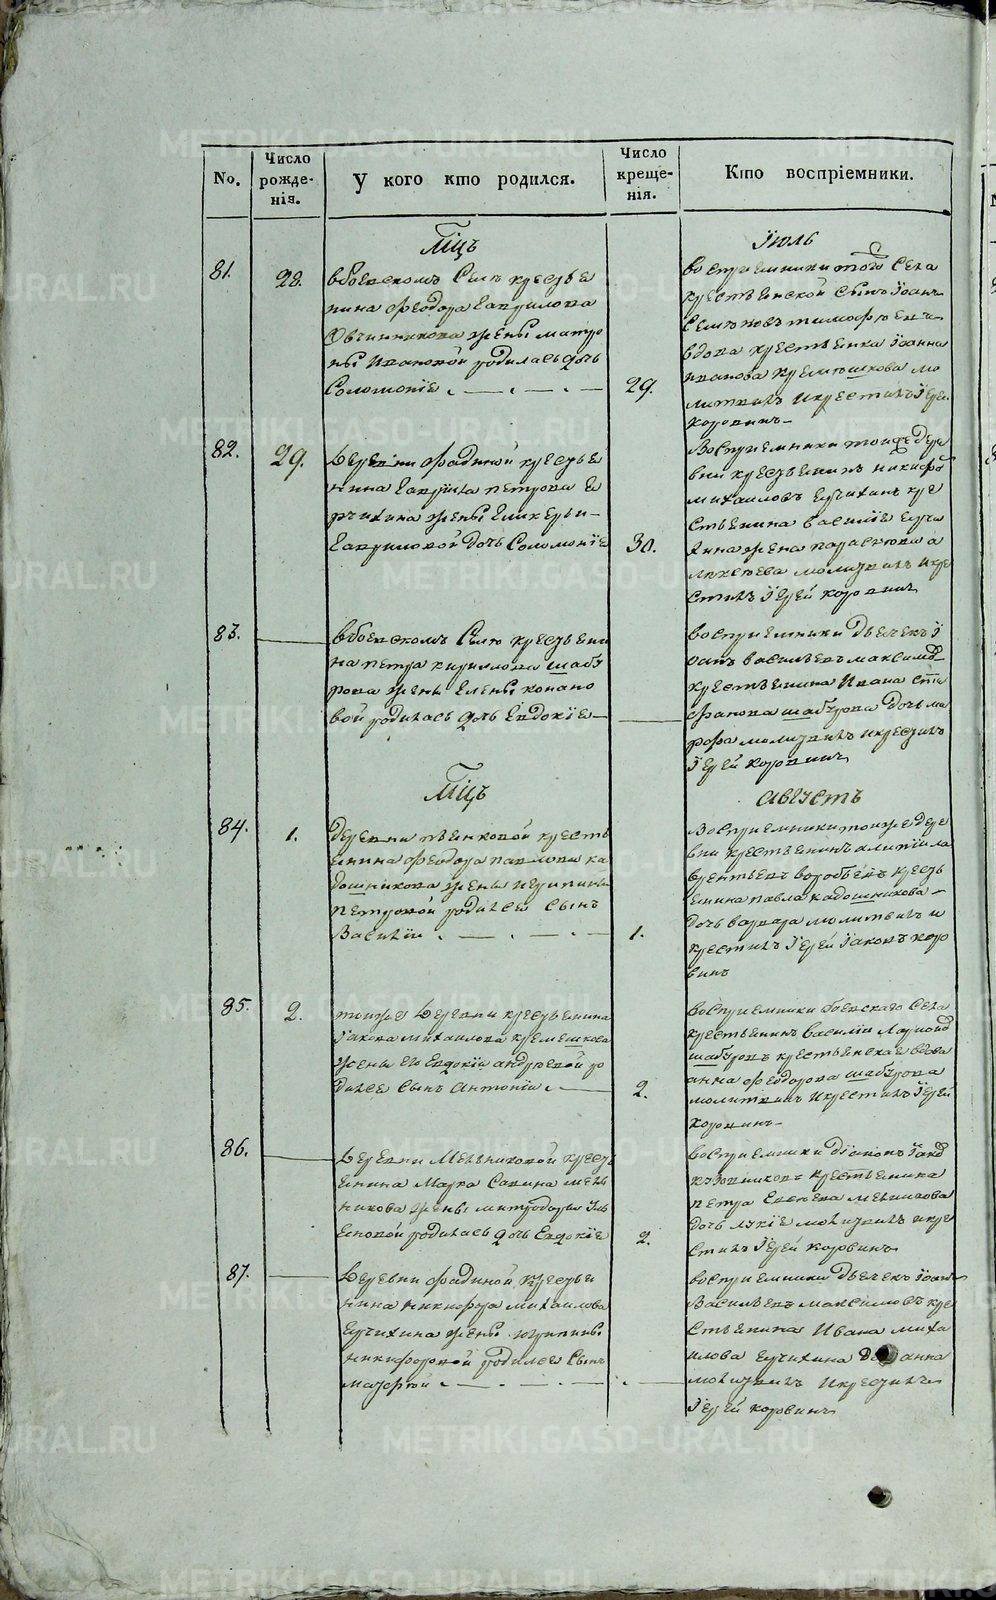 No.
Число рожде-нія.
У кого кто родился.
Число креще-нія.
Кто воспріемники.
Мцъ
Іюль
81.
28.
вбоевскомъ Селѣ крестья
нина Феодора Гаврилова
Овчинникова жены матро
ны Ивановой родилась дочь
Соломоніе
29.
воспріемники того Села
крестьянской сынъ Іоаннъ
вдова крестьянка Іоанна
Иванова Кремешкова мо
литвилъ икрестилъ Іерей
коровинъ
82.
29.
Деревни Фадиной крестья
нина Гаврила петрова
жены Гликерьи
Гавриловой дочь Соломоніе
30.
Воспріемники тоижъ дере
вни крестьянинъ никифо
михаиловъ кре
стьянина василіе
жена параскова а
лексеева молитвилъ икре
стилъ Іерей коровинъ
83.
вбоевскомъ Селѣ крестьяни
на петра кирилова шабу
рова жены Елены конано
вой родилась дочь Евдокіе
воспріемники дьечекъ І
оанъ василье​въ максимов
крестьянина Ивана сте
фанова шабурова дочь ма
рфа молитвилъ икрестилъ
Іерей коровинъ
Мцъ
Августъ
84.
1.
деревни крестья
янина Феодора павлова ка
дошникова жены
петровой родился Сынъ
Василіи
1.
Воспріемники тоиже дере
вни крестьянинъ
врентьевъ воробьевъ кресть
янина павла кадошникова
дочь варвара молитвилъ и
крестилъ Іерей Іаковъ коро
винъ
85.
2.
тоиже Деревни крестьянина
Іакова михаилова кремешкова
жены ево Евдокіи андреевой ро
дился Сынъ Антоніи
2.
воспріемники боевскаго Села
крестьянинъ василіи
шабуровъ крестьянская вдова
анна Феодорова шабурова
молитвилъ икрестилъ Іерей
коровинъ
86.
Деревни Мельниковой кресть
янина Марка Савина мель
никова жены митродоры
еновой родилась дочь Евдокіе
2.
воспріемники діаконъ
крестьянина
петра Евсеева мельникова
дочь лукіе молитвилъ икре
стилъ Іерей коровинъ
87.
Деревни Фадиной крестья
нина никифора михаилова
жены
никифоровой родился Сынъ
воспріемники дьечекъ Іоанъ
Васильевъ максимовъ кре
стьянина Ивана миха
илова анна
молитвилъ икрестилъ
Іерей коровинъ
METRIKI.GASO-URAL.RU